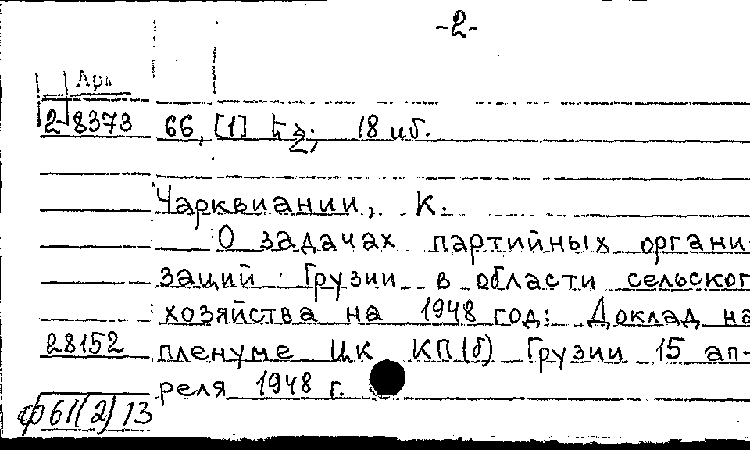 -2-
Арм
28373 66, [1] էջ; 18 սմ.
Чарквиании, К.
О задачах партийных органи
заций Грузии в области сельског
хозяйства на 1948 год: Доклад на
28152 пленуме ЦК КП(б) Грузии 15 ап-
реля 1948 г.
ф61(2)13